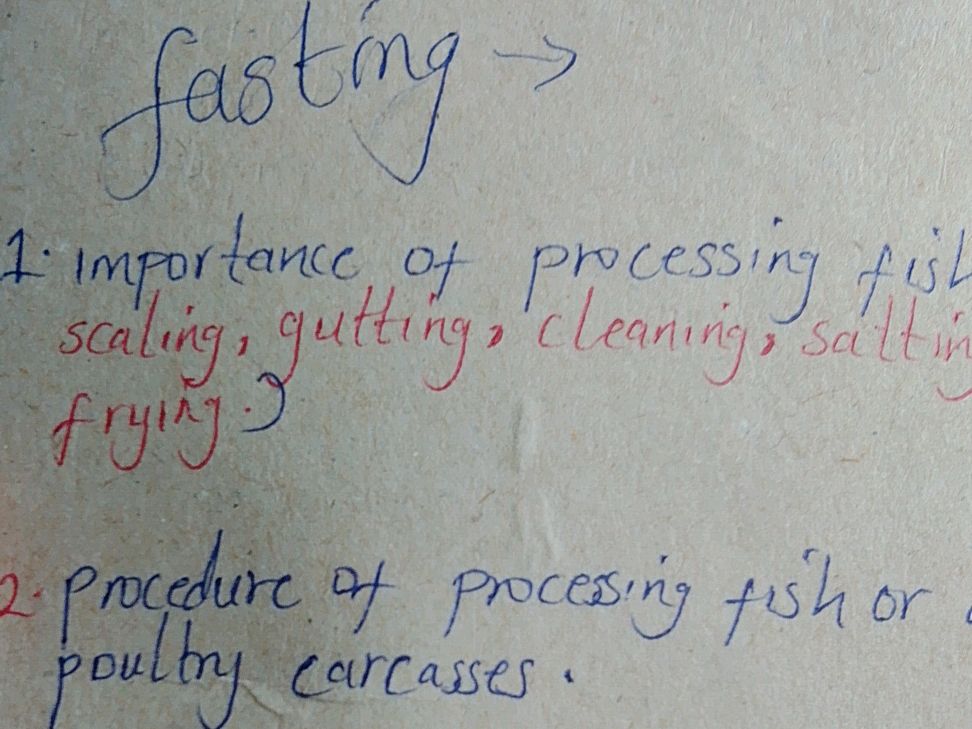 fasting →
1. importance of processing fish
scaling, gutting, cleaning, salting
frying.)
2. procedure of processing fish or
poultry carcasses.